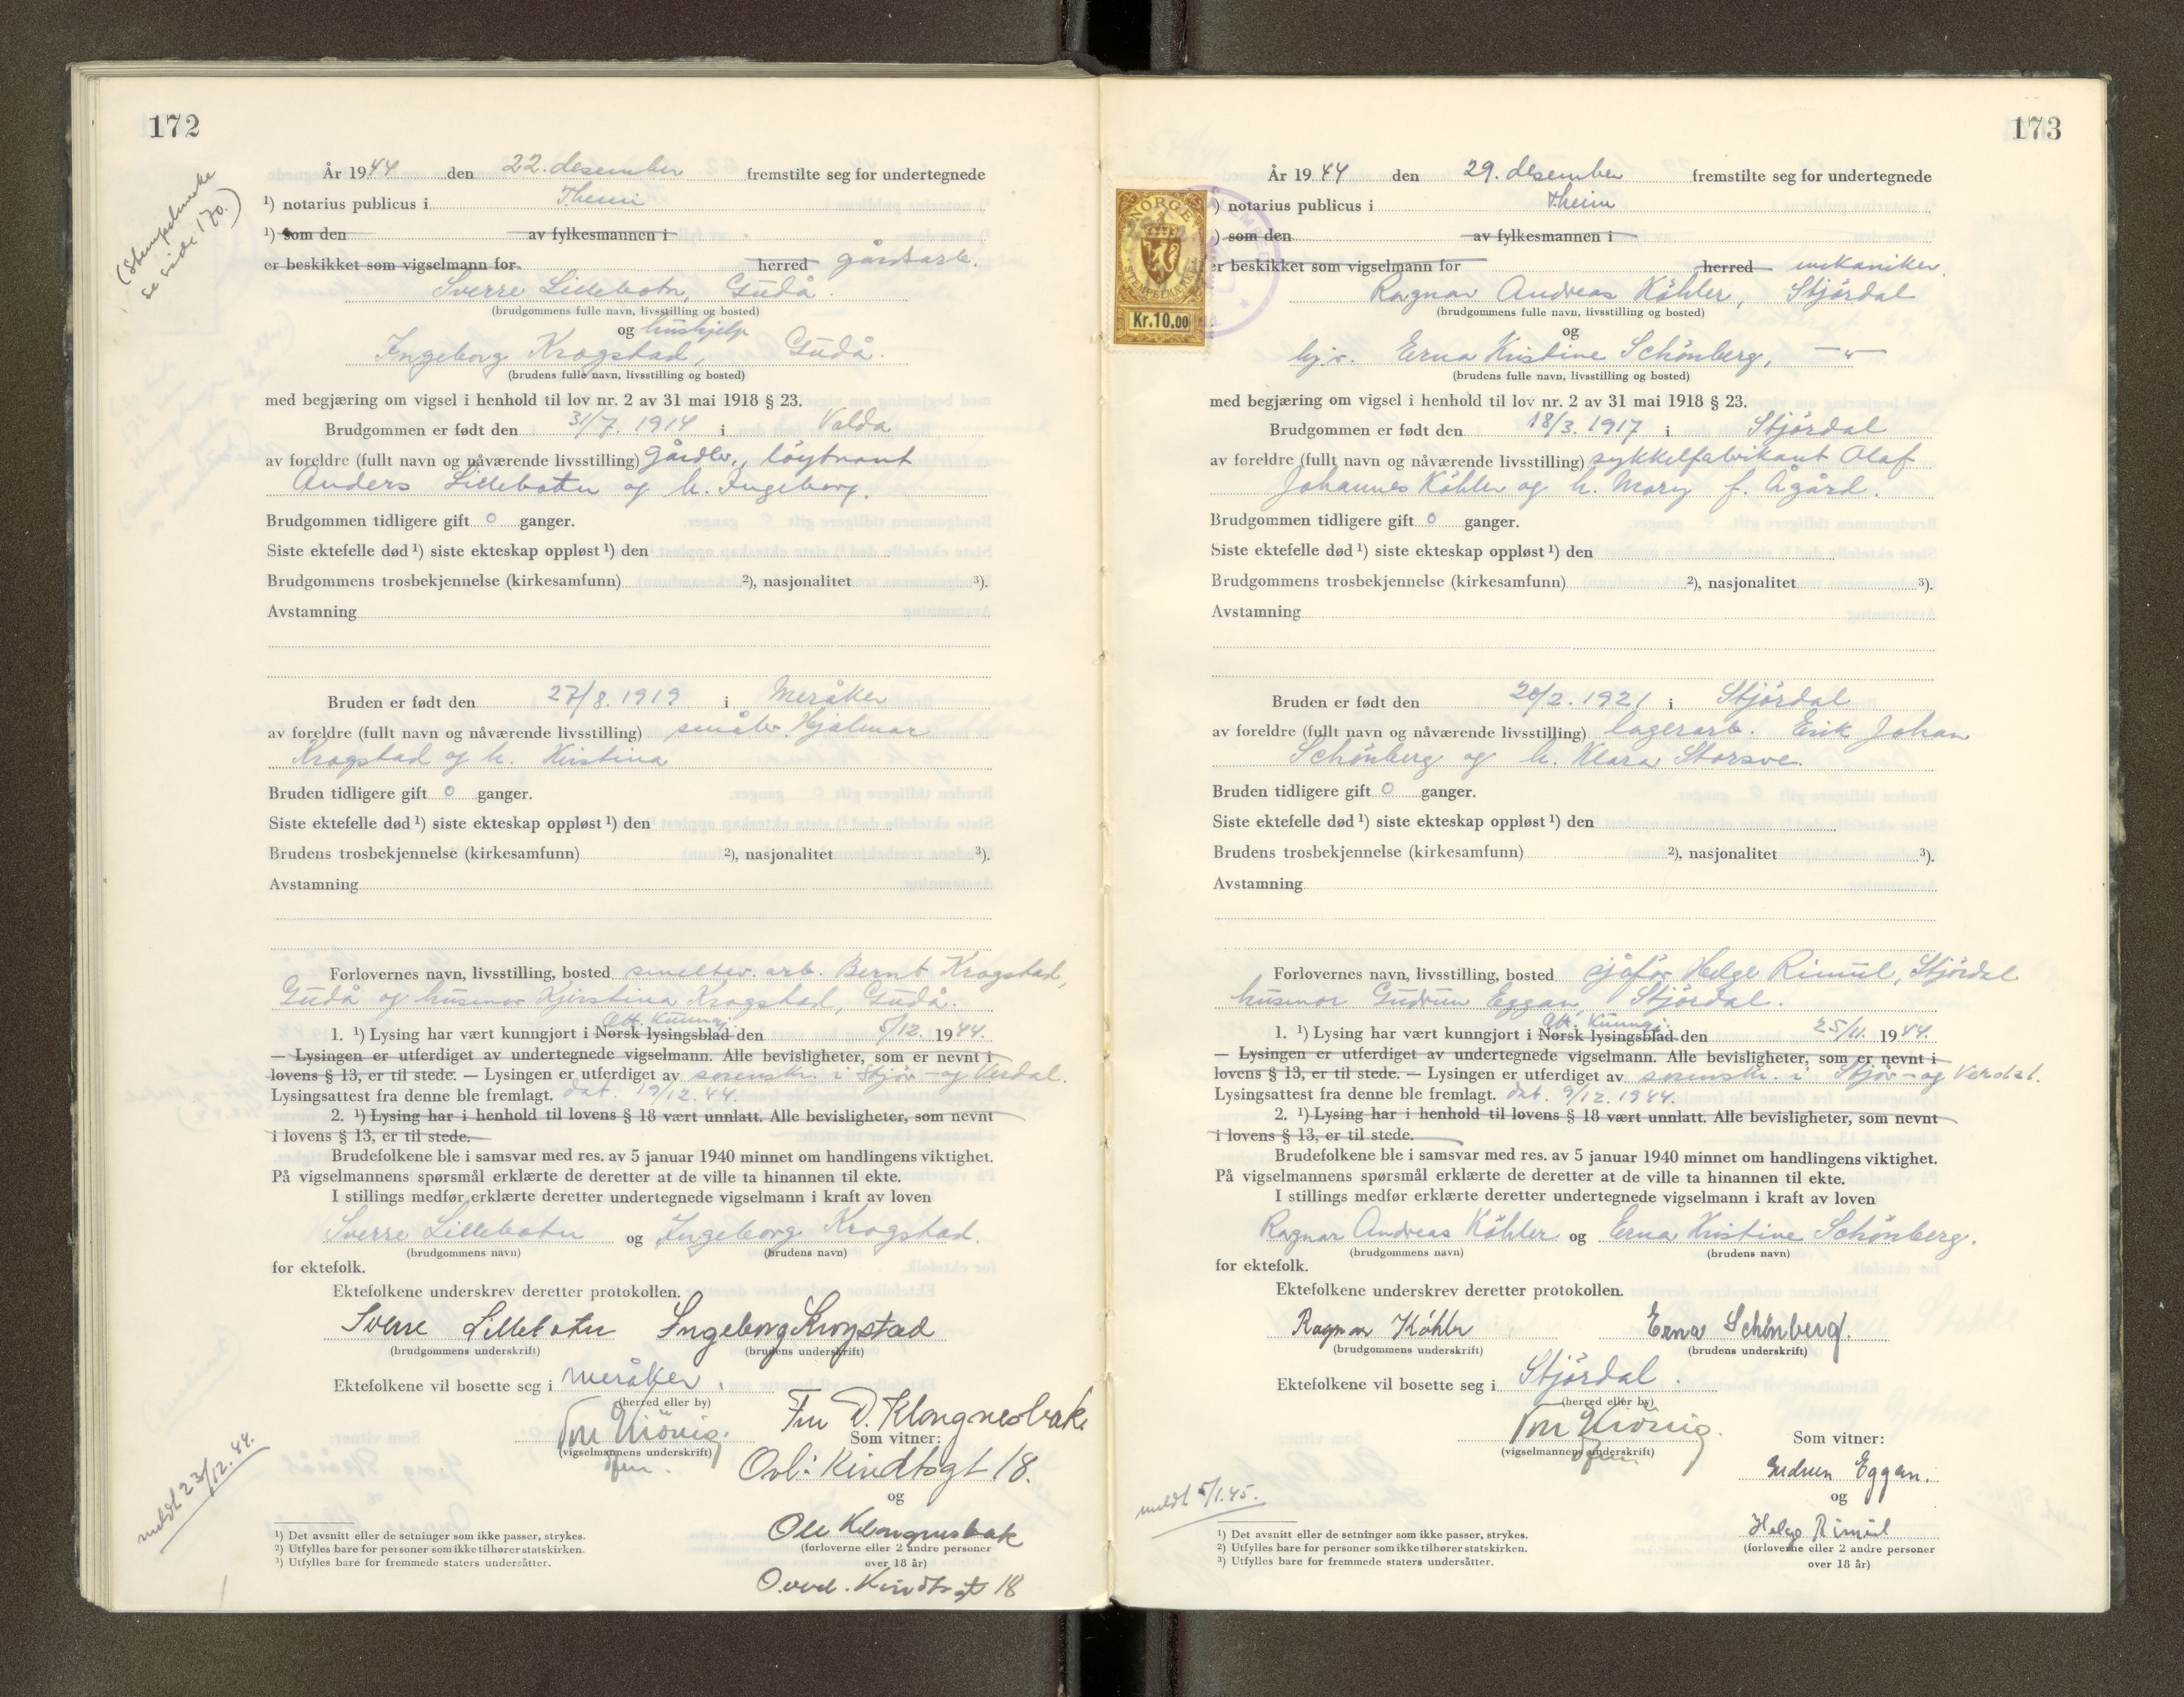 172
(Stempelmerke
se side 170.)
År 1944 den 22. desember fremstilte seg for undertegnede
¹) notarius publicus i Theim
¹) som den av fylkesmannen i
er beskikket som vigselmann for herred gårdsarb.
Sverre Lillebotn, Gudå.
(brudgommens fulle navn, livsstilling og bosted)
og hushjelp
Ingeborg Krogstad, Gudå.
(brudens fulle navn, livsstilling og bosted)
med begjæring om vigsel i henhold til lov nr. 2 av 31 mai 1918 § 23.
Brudgommen er født den 31/7. 1914 i Valda
av foreldre (fullt navn og nåværende livsstilling) gårdbr., löytnant
Anders Lillebotn og h. Ingeborg.
Brudgommen tidligere gift 0 ganger.
Siste ektefelle død ¹) siste ekteskap oppløst ¹) den
Brudgommens trosbekjennelse (kirkesamfunn) ²), nasjonalitet ³).
Avstamning
Bruden er født den 27/8. 1919 i Meråker
av foreldre (fullt navn og nåværende livsstilling) småbr. Hjalmar
Krogstad og h. Kirstina
Bruden tidligere gift 0 ganger.
Siste ektefelle død ¹) siste ekteskap oppløst ¹) den
Brudens trosbekjennelse (kirkesamfunn) ²), nasjonalitet ³).
Avstamning
Forlovernes navn, livsstilling, bosted smeltev. arb. Bernt Krogstad,
Gudå og husmor Kjerstina Krogstad, Gudå.
Off. Kunngj.
1. ¹) Lysing har vært kunngjort i Norsk lysingsblad den 5/12. 1944.
— Lysingen er utferdiget av undertegnede vigselmann. Alle bevisligheter, som er nevnt i
lovens § 13, er til stede. — Lysingen er utferdiget av sorenskr. i Stjör- og Verdal.
Lysingsattest fra denne ble fremlagt. dat. 19/12. 44.
2. ¹) Lysing har i henhold til lovens § 18 vært unnlatt. Alle bevisligheter, som nevnt
i lovens § 13, er til stede.
Brudefolkene ble i samsvar med res. av 5 januar 1940 minnet om handlingens viktighet.
På vigselmannens spørsmål erklærte de deretter at de ville ta hinannen til ekte.
I stillings medfør erklærte deretter undertegnede vigselmann i kraft av loven
Sverre Lillebotn og Ingeborg Krogstad.
(brudgommens navn) (brudens navn)
for ektefolk.
Ektefolkene underskrev deretter protokollen.
Sverre Lillebotn Ingeborg Krogstad
(brudgommens underskrift) (brudens underskrift)
Ektefolkene vil bosette seg i Meråker.
(herred eller by)
Fru D. Klongnesbak
(vigselmannens underskrift) Som vitner:
Ovl: Kindtsgt 18.
og
Ole Klongnesbak
(forloverne eller 2 andre personer
over 18 år)
18
meldt 23/12. 44.
¹) Det avsnitt eller de setninger som ikke passer, strykes.
²) Utfylles bare for personer som ikke tilhører statskirken.
³) Utfylles bare for fremmede staters undersåtter.
173
NORGE
STEMPELMERKE
Kr.10.00
År 1944 den 29. desember fremstilte seg for undertegnede
) notarius publicus i Theim
) som den av fylkesmannen i
er beskikket som vigselmann for herred mekaniker.
Ragnar Andreas Köhler, Stjördal
(brudgommens fulle navn, livsstilling og bosted)
og
hj.v. Erna Kristine Schönberg, —"—
(brudens fulle navn, livsstilling og bosted)
med begjæring om vigsel i henhold til lov nr. 2 av 31 mai 1918 § 23.
Brudgommen er født den 18/3. 1917 i Stjördal
av foreldre (fullt navn og nåværende livsstilling) sykkelfabrikant Olaf
Johannes Köhler og h. Mary f. Ågård.
Brudgommen tidligere gift 0 ganger.
Siste ektefelle død ¹) siste ekteskap oppløst ¹) den
Brudgommens trosbekjennelse (kirkesamfunn) ²), nasjonalitet ³).
Avstamning
Bruden er født den 20/2. 1921 i Stjördal
av foreldre (fullt navn og nåværende livsstilling) lagerarb. Erik Johan
Schönberg og h. Klara Storsve.
Bruden tidligere gift 0 ganger.
Siste ektefelle død ¹) siste ekteskap oppløst ¹) den
Brudens trosbekjennelse (kirkesamfunn) ²), nasjonalitet ³).
Avstamning
Forlovernes navn, livsstilling, bosted sjåför Helge Rimul, Stjördal
husmor Gudrun Eggan, Stjördal.
Off. Kunngj.
1. ¹) Lysing har vært kunngjort i Norsk lysingsblad den 25/11. 1944.
— Lysingen er utferdiget av undertegnede vigselmann. Alle bevisligheter, som er nevnt i
lovens § 13, er til stede. — Lysingen er utferdiget av sorenskr. i Stjör- og Verdal.
Lysingsattest fra denne ble fremlagt. dat. 9/12. 1944.
2. ¹) Lysing har i henhold til lovens § 18 vært unnlatt. Alle bevisligheter, som nevnt
i lovens § 13, er til stede.
Brudefolkene ble i samsvar med res. av 5 januar 1940 minnet om handlingens viktighet.
På vigselmannens spørsmål erklærte de deretter at de ville ta hinannen til ekte.
I stillings medfør erklærte deretter undertegnede vigselmann i kraft av loven
Ragnar Andreas Köhler og Erna Kristine Schönberg.
(brudgommens navn) (brudens navn)
for ektefolk.
Ektefolkene underskrev deretter protokollen.
Ragnar Köhler Erna Schönberg.
(brudgommens underskrift) (brudens underskrift)
Ektefolkene vil bosette seg i Stjördal.
(herred eller by)
(vigselmannens underskrift) Som vitner:
Gudrun Eggan.
og
Helge Rimul
(forloverne eller 2 andre personer
over 18 år)
meldt 5/1.45.
¹) Det avsnitt eller de setninger som ikke passer, strykes.
²) Utfylles bare for personer som ikke tilhører statskirken.
³) Utfylles bare for fremmede staters undersåtter.